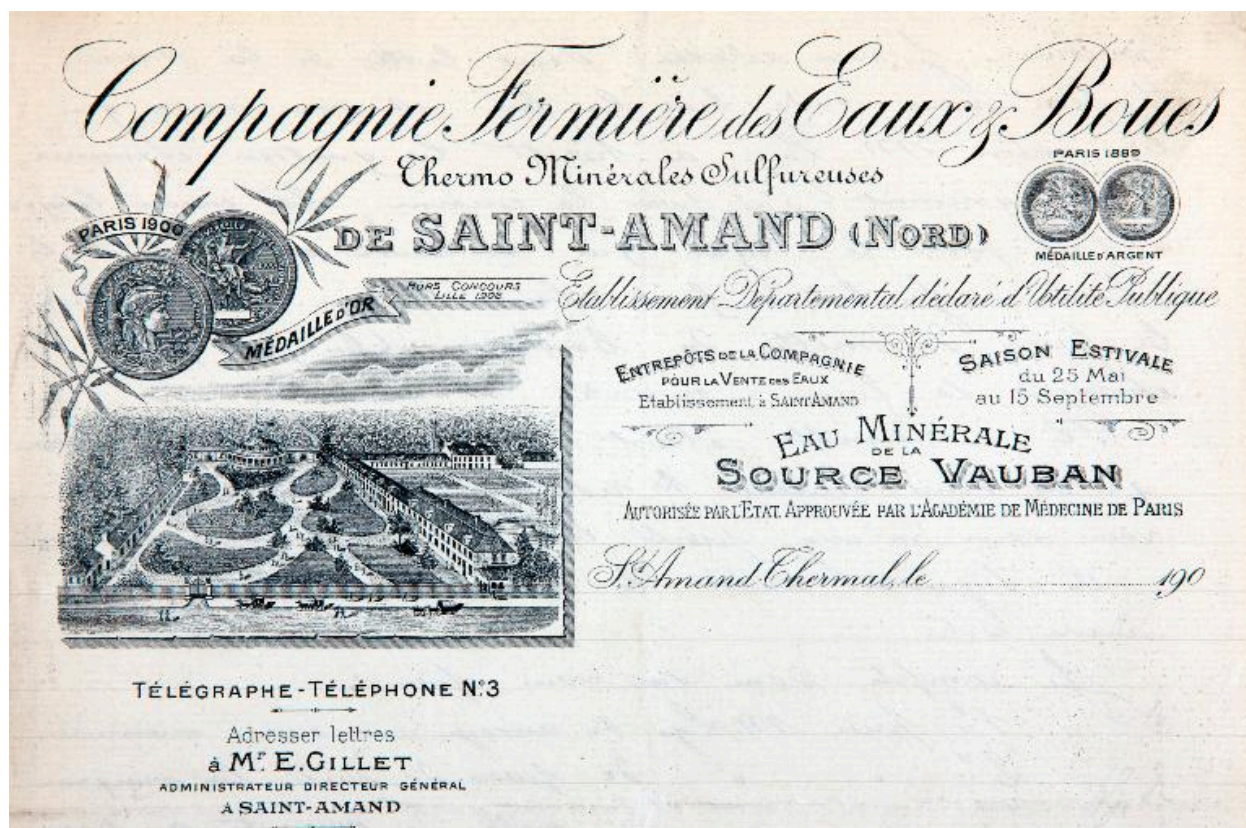 Compagnie Fermière des Eaux & Boues
Thermo Minérales Sulfureuses
DE SAINT-AMAND (NORD)
PARIS 1889
MÉDAILLE D'ARGENT
PARIS 1900
MÉDAILLE D'OR
HORS CONCOURS
LILLE 1902
Etablissement Départemental déclaré d'Utilité Publique
ENTREPÔTS DE LA COMPAGNIE
POUR LA VENTE DES EAUX
Etablissement à SAINT AMAND
SAISON ESTIVALE
du 25 Mai
au 15 Septembre
EAU MINÉRALE
DE LA
SOURCE VAUBAN
AUTORISÉE PAR L'ETAT APPROUVÉE PAR L'ACADÉMIE DE MÉDECINE DE PARIS
St Amand Thermal, le 190
TÉLÉGRAPHE-TÉLÉPHONE N°3
Adresser lettres
à Mr E. GILLET
ADMINISTRATEUR DIRECTEUR GÉNÉRAL
À SAINT-AMAND